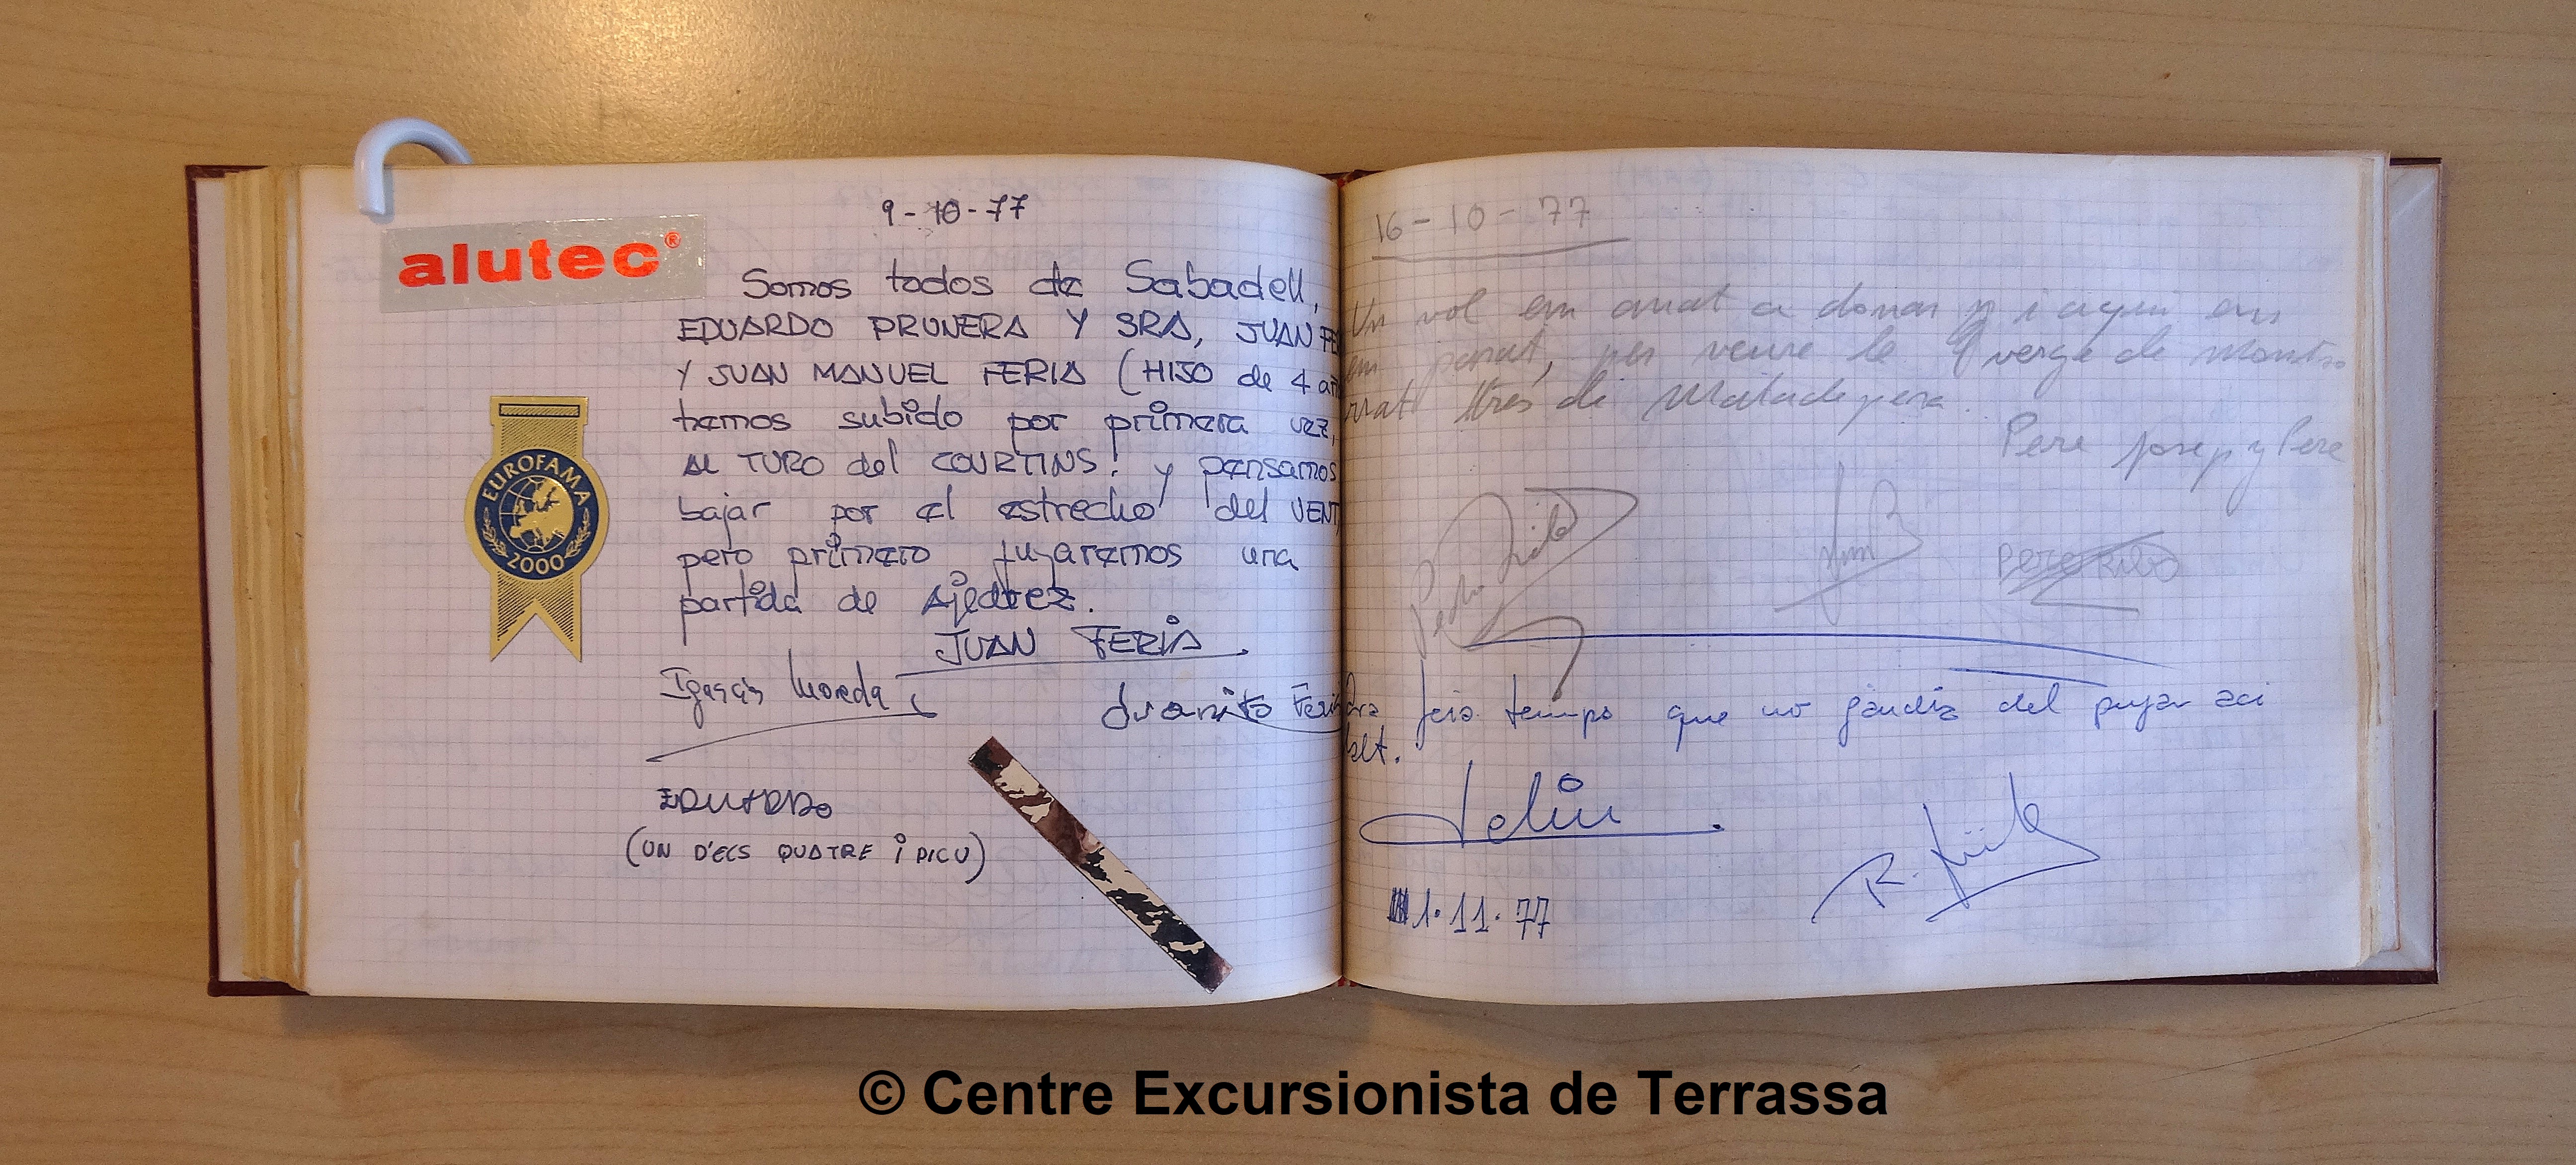 alutec®
9-10-77
Somos todos de Sabadell,
EDUARDO PRUNERA Y SRA, JUAN FE
Y JUAN MANUEL FERIA (HIJO de 4 añ
hemos subido por primera vez,
AL TURO del COURTINS! y pensamos
bajar por el estrecho del VENT
pero primero jugaremos una
partida de Ajedrez.
JUAN FERIA
Moreda
Juanito Feria
EDUARDO
(UN D'ELS QUATRE i PICU)
EUROFAMA
2000
16-10-77
Un vol em anat a donar y i aqui ens
em parat, per veure le verge de Montse
rrat tres de Matadepera.
Pere Josep y Pere
Pere Ribó
feia temps que no gaudia del pujar aci
dalt.
R.
1.11.77
© Centre Excursionista de Terrassa